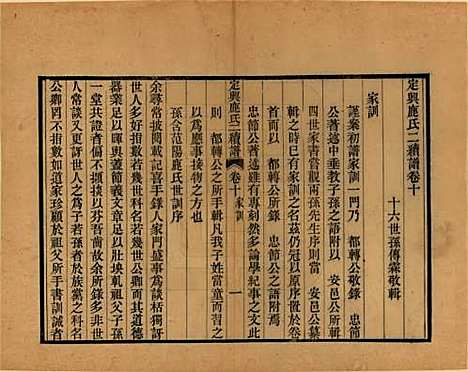 定興鹿氏二續譜卷十
十六世孫傳霖敬輯
家訓
謹案初譜家訓一門乃 都轉公敬錄 忠節
公著述中垂敎子孫之語附以 安邑公所輯
四世家書嘗觀兩孫先生序則當 安邑公纂
輯之時已有家訓之名茲仍冠以原序置於卷
首而以 都轉公所錄 忠節公之語附焉
忠節公著述雖自有專刻然多論學紀事之文此
定興鹿氏二續譜 卷十 家訓 一
則 都轉公之所手輯凡我子姓當童而習之
以為應事接物之方也
孫含范陽鹿氏世訓序
余尋常披閱載記喜手錄人家門盛事為談柄獨訝
世人多必好官指數如幾世科名若幾世公卿其道德
器業足以暉與蓋節義文章足以壯埉軋光父子孫
一堂共證者偏漠不多及以芬吾齒故余所錄多非世
人常談又更訝世人之為子若孫者於族黨之科名
公卿罔不指數如道家珍顧於祖父所手書訓誡者